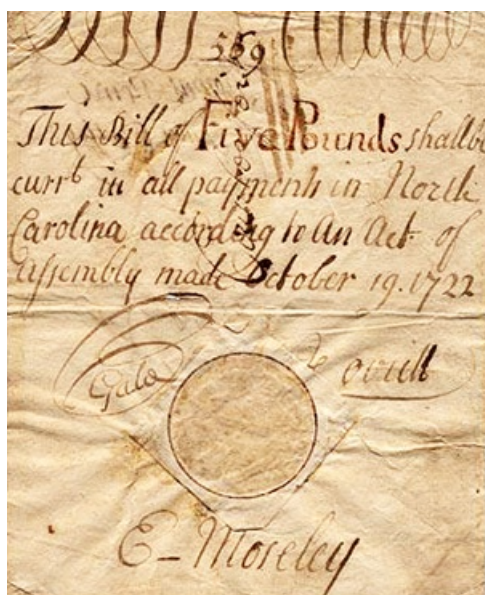 569
This Bill of Five Pounds shall be
currt in all payments in North
Carolina according to An Act of
Assembly made October 19. 1722
Gale
ovick
E-Moseley